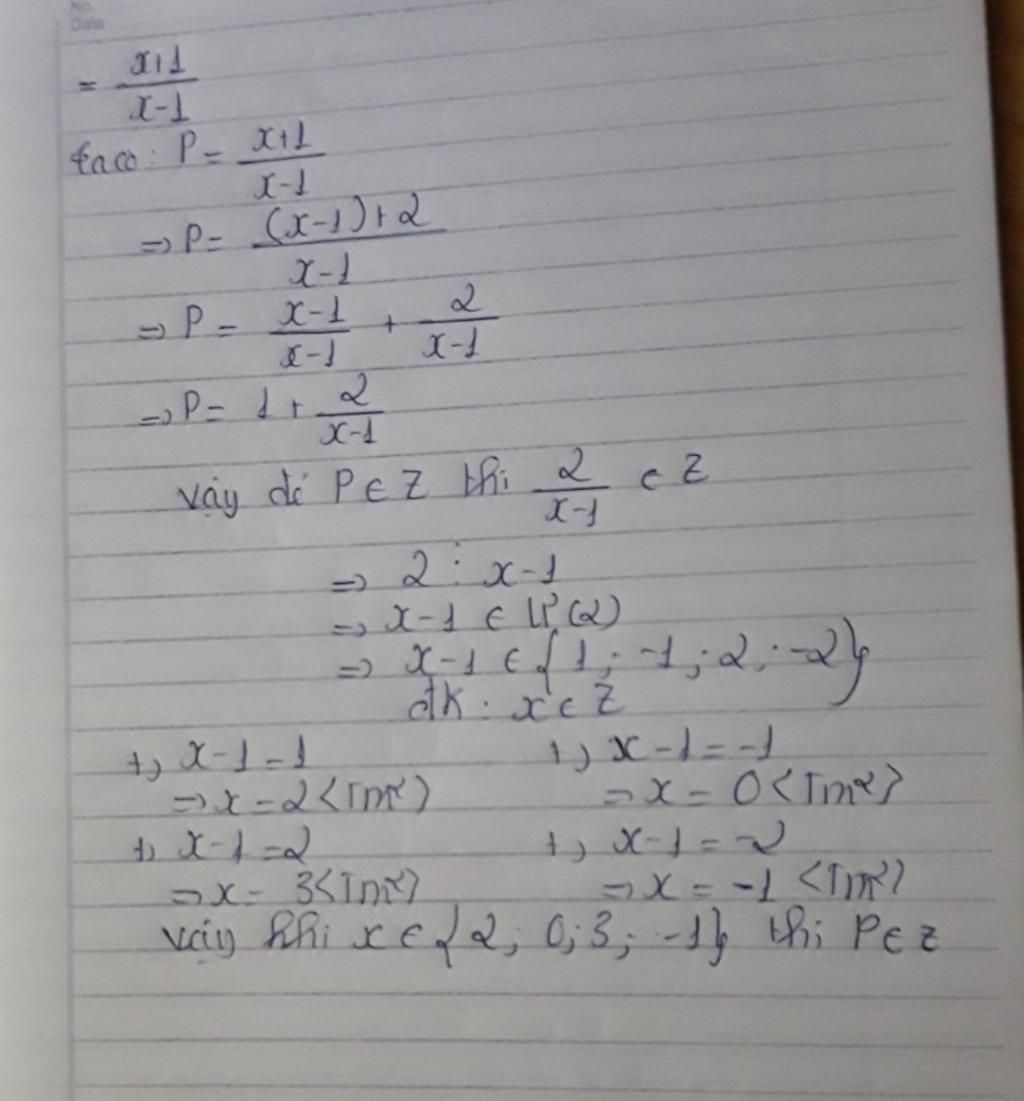 No.
Date
= x+1 / x-1
taco: P = x+1 / x-1
=> P = (x-1)+2 / x-1
=> P = x-1 / x-1 + 2 / x-1
=> P = 1 + 2 / x-1
vậy để P ∈ Z thì 2 / x-1 ∈ Z
=> 2 ⋮ x-1
=> x-1 ∈ Ư(2)
=> x-1 ∈ {1; -1; 2; -2}
đk: x ∈ Z
+, x-1=1 +, x-1=-1
=> x=2 <Tm> => x=0 <Tm>
+, x-1=2 +, x-1=-2
=> x=3 <Tm> => x=-1 <Tm>
vậy khi x ∈ {2; 0; 3; -1} thì P ∈ Z